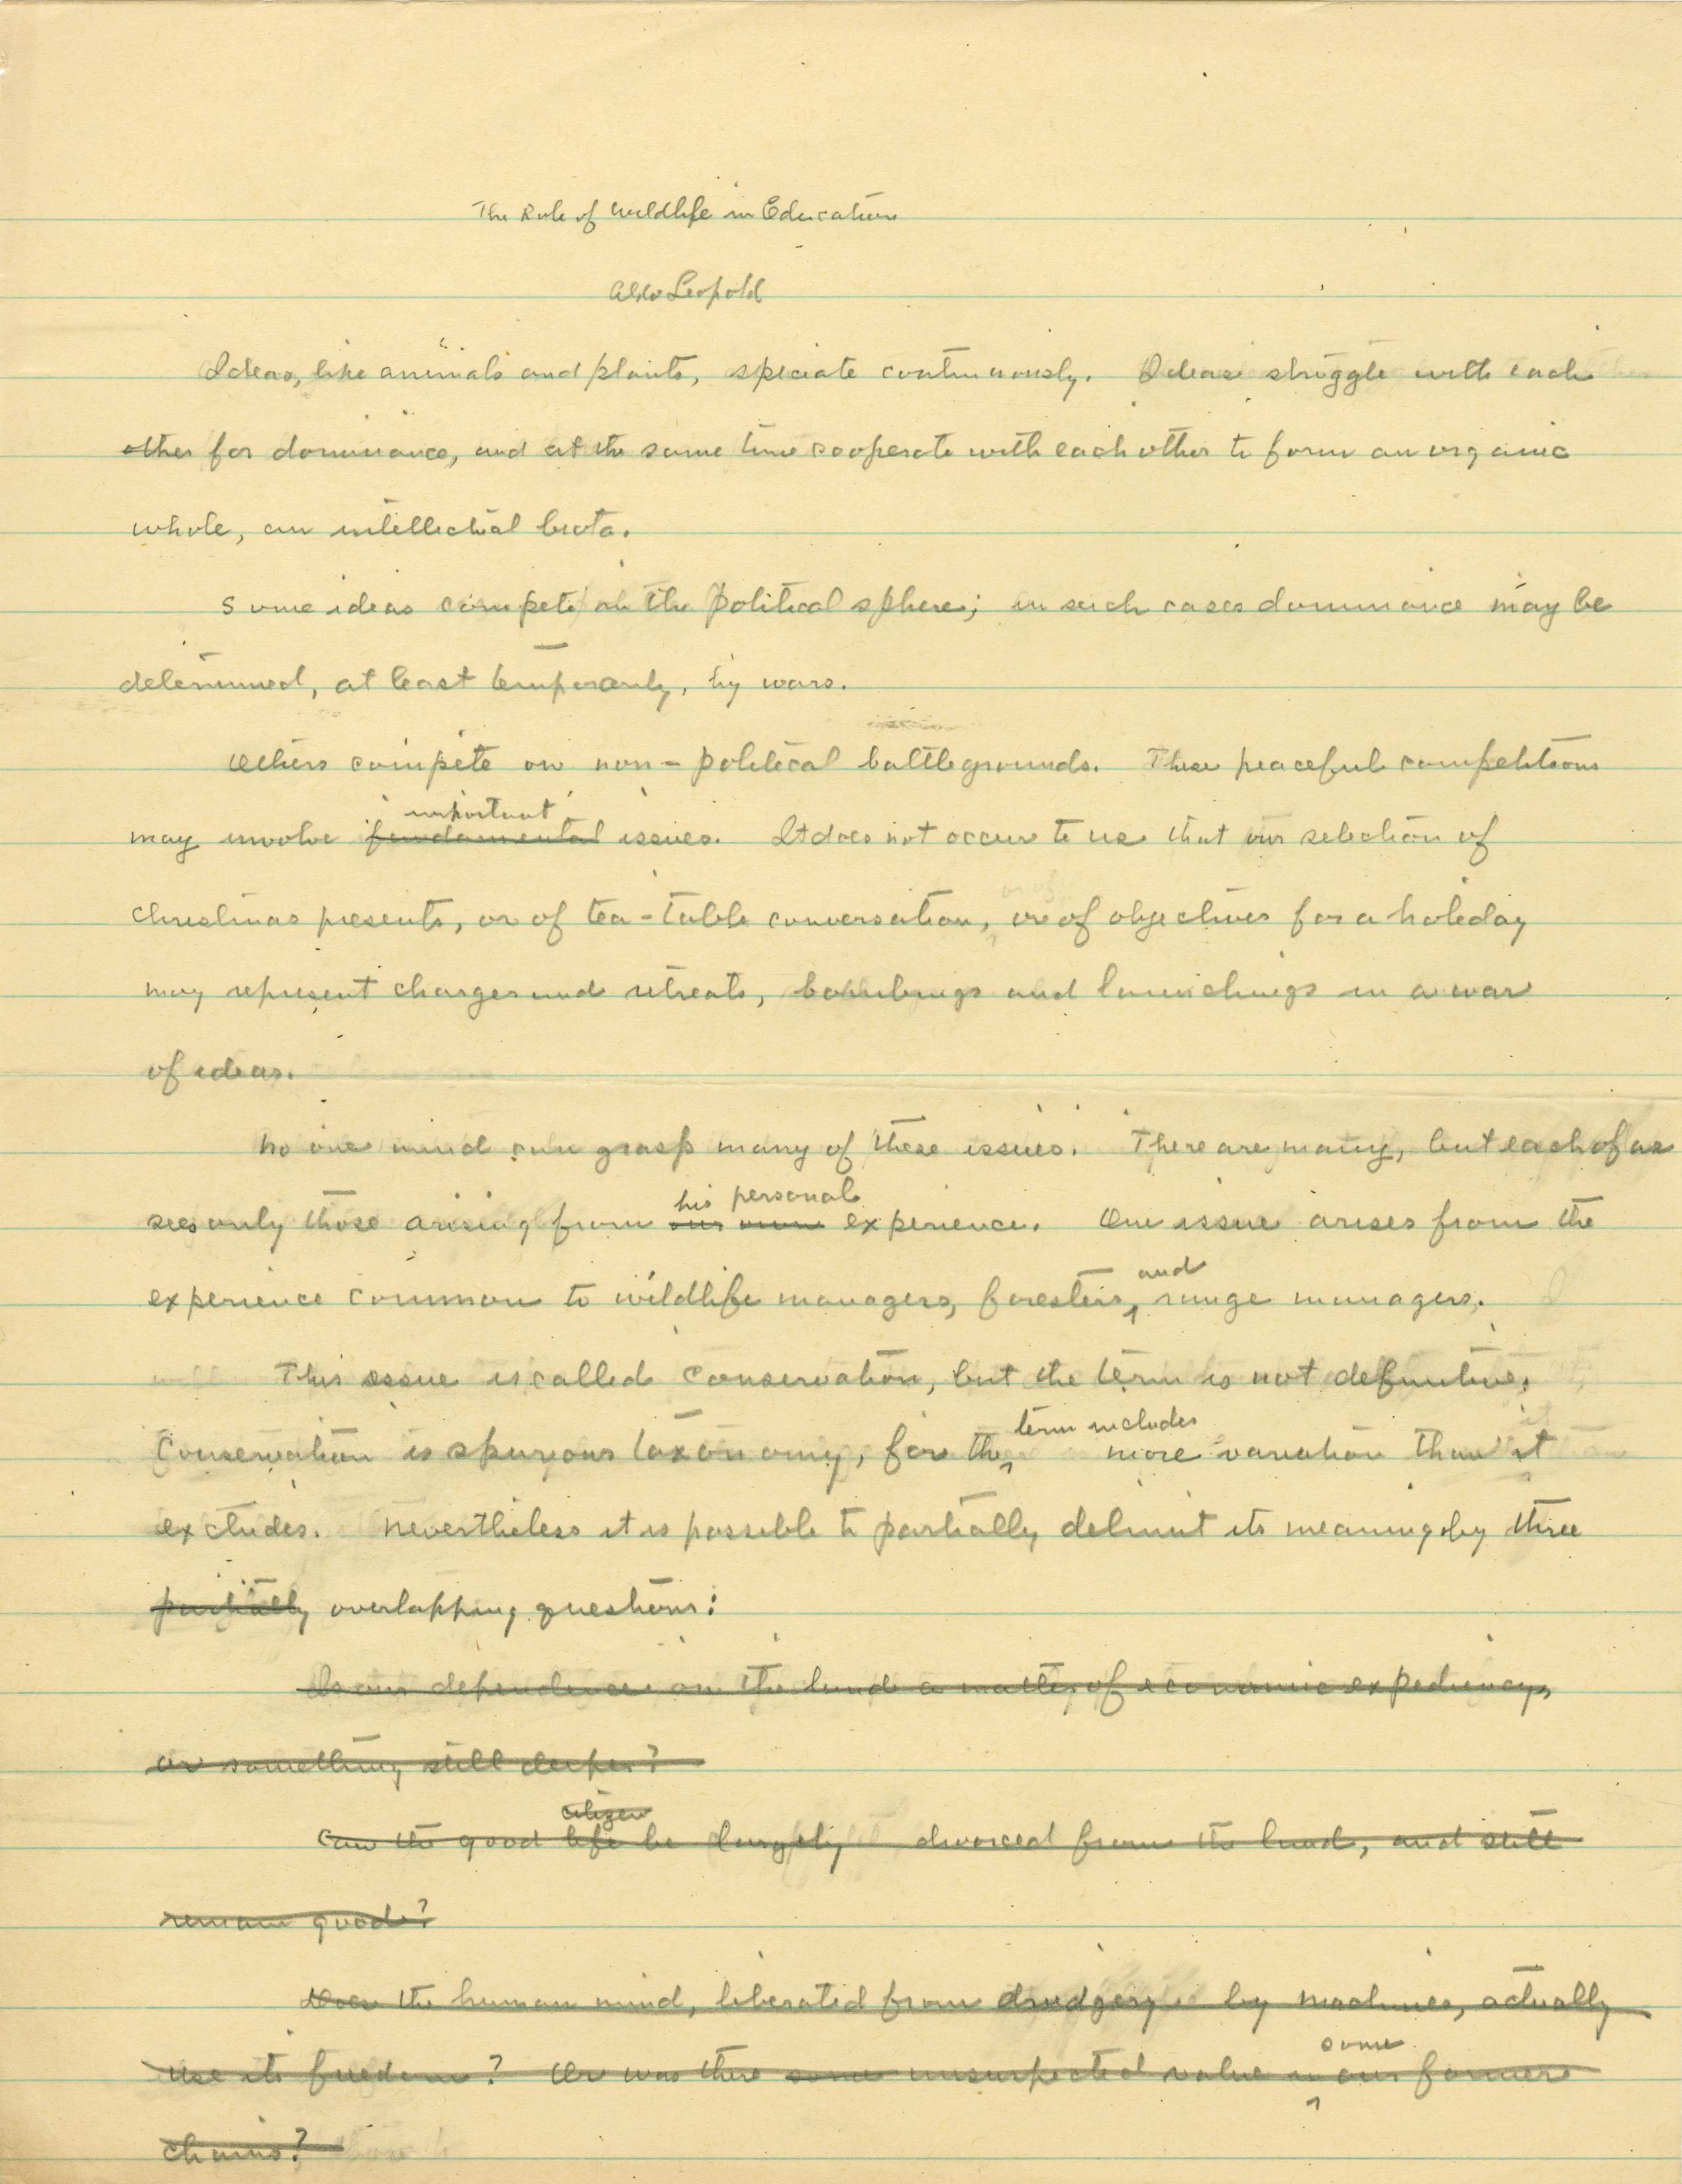 The Role of Wildlife in Education
Aldo Leopold
Ideas, like animals and plants, speciate continuously. Ideas struggle with each
other for dominance, and at the same time cooperate with each other to form an organic
whole, an intellectual biota.
Some ideas compete in the political sphere; in such cases dominance may be
determined, at least temporarily, by wars.
Others compete on non-political battlegrounds. These peaceful competitions
important
may involve fundamental issues. It does not occur to us that our selection of
christmas presents, or of tea-table conversation, or of objectives for a holiday
may represent charges and retreats, bombings and launchings in a war
of ideas.
No one mind can grasp many of these issues. There are many, but each of us
his personal
sees only those arising from our own experience. One issue arises from the
and
experience common to wildlife managers, foresters, range managers.
This issue is called conservation, but the term is not definitive.
term includes
Conservation is spurious taxonomy, for the more variation than it
excludes. Nevertheless it is possible to partially delimit its meaning by three
partially overlapping questions:
Is our dependence on the land a matter of economic expediency,
or something still deeper?
citizen
Can the good life be largely divorced from the land, and still
remain good?
Does the human mind, liberated from drudgery by machines, actually
some
use its freedom? Or was there some unsuspected value in our former
chains?